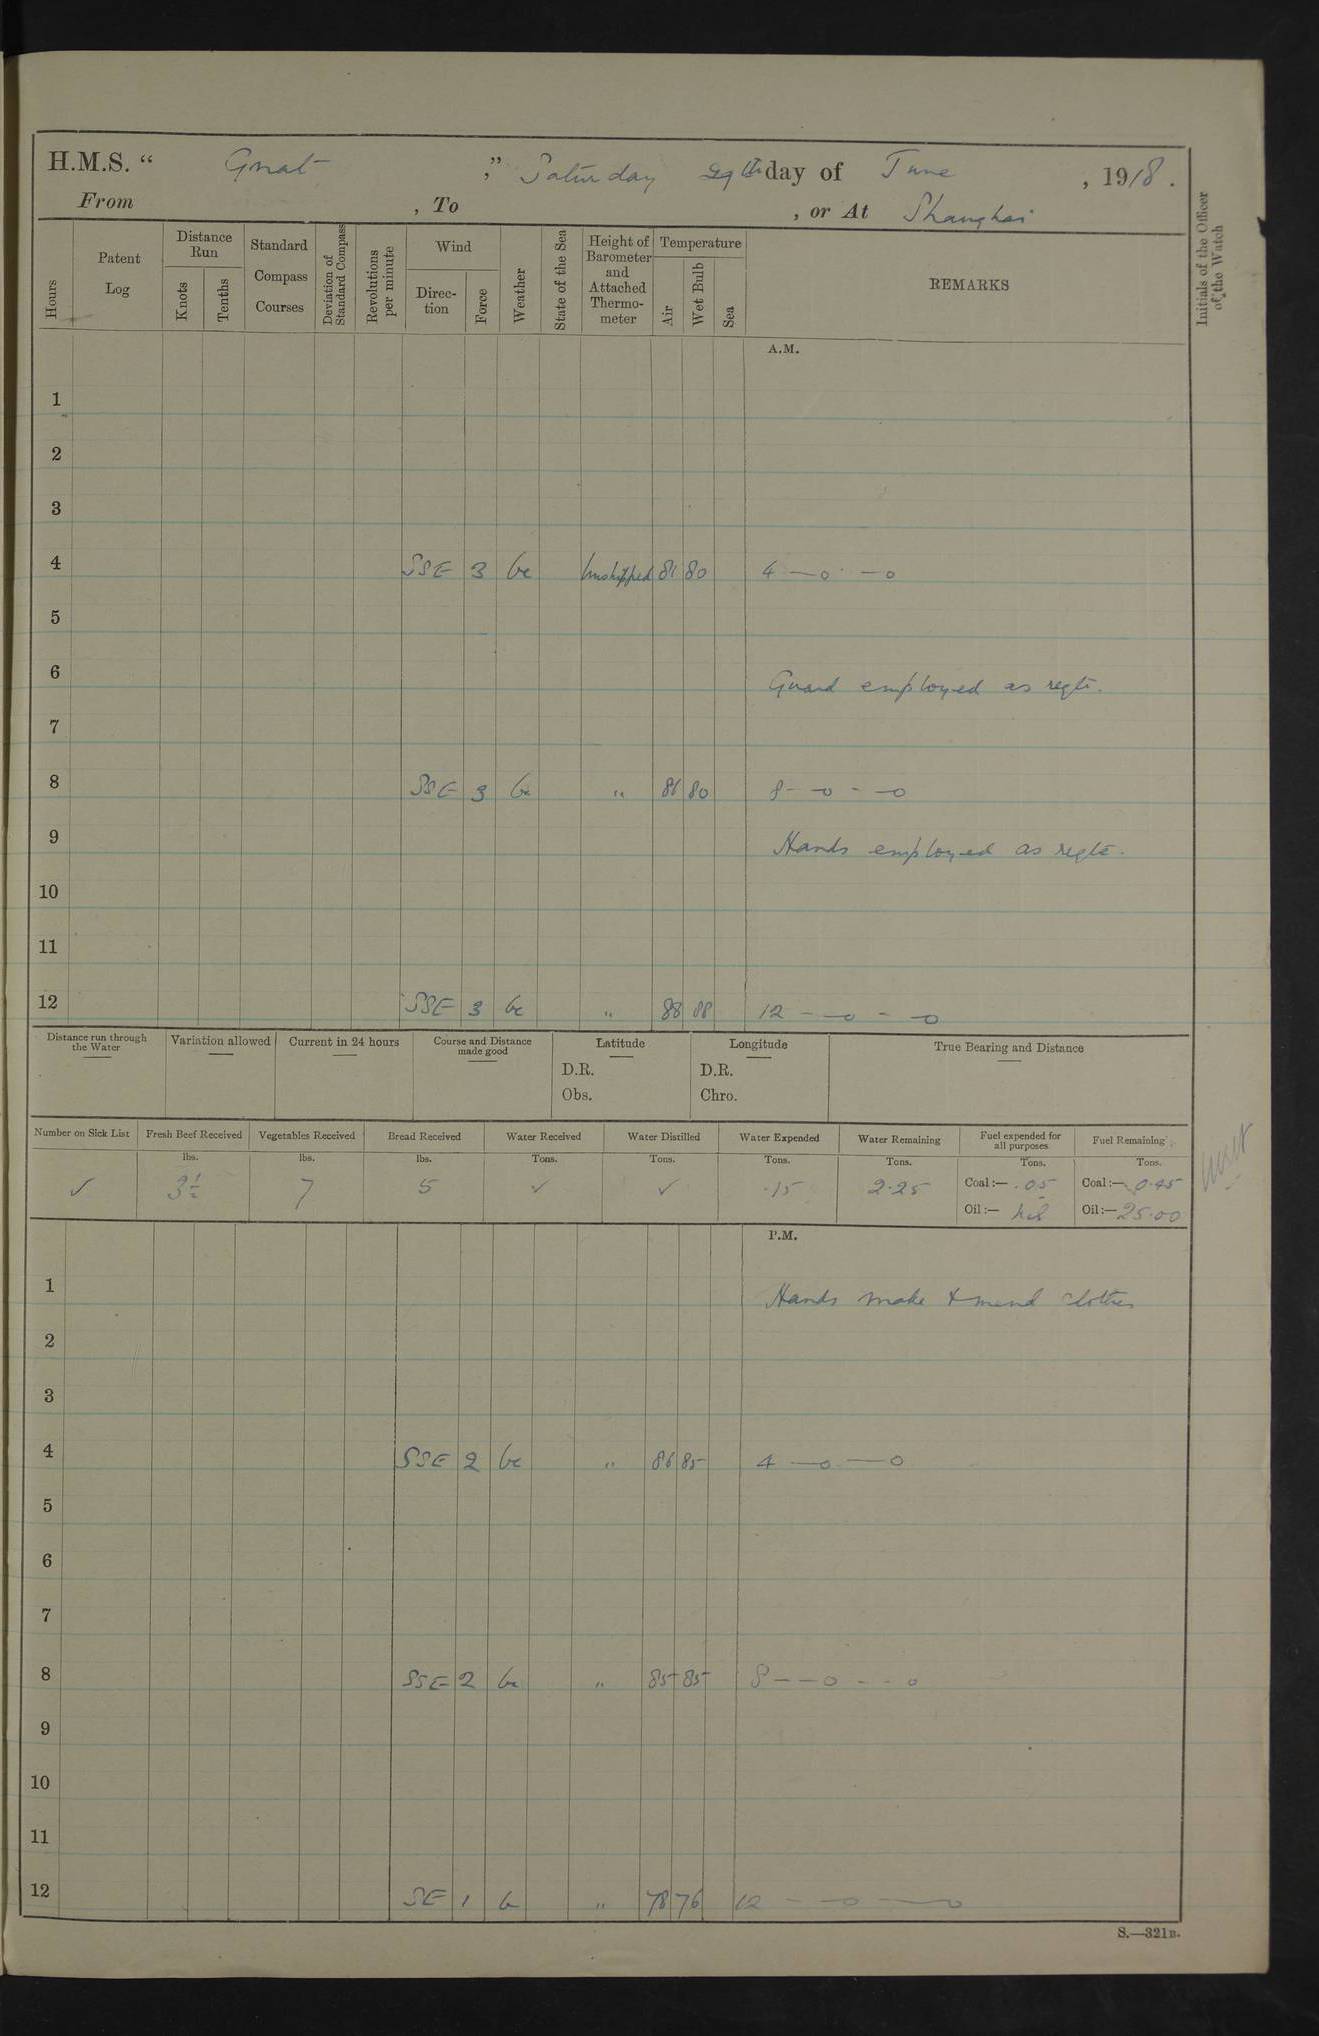 H.M.S. “ Gnat ,” Saturday 29th day of June , 1918.
From , To , or At Shanghai
Hours
Patent Log
Distance Run
Knots
Tenths
Standard Compass Courses
Deviation of Standard Compass
Revolutions per minute
Wind
Direc-tion
Force
Weather
State of the Sea
Height of Barometer and Attached Thermo-meter
Temperature
Air
Wet Bulb
Sea
REMARKS
Initials of the Officer of the Watch
A.M.
1
2
3
4 SSE 3 bc Unshipped 81 80 4 —o —o
5
6 Guard employed as reqte.
7
8 SSE 3 bc " 86 80 8- —o - —o
9 Hands employed as reqte.
10
11
12 SSE 3 bc " 88 88 12 - —o - —o
Distance run through the Water
Variation allowed
Current in 24 hours
Course and Distance made good
Latitude
D.R.
Obs.
Longitude
D.R.
Chro.
True Bearing and Distance
Number on Sick List Fresh Beef Received Vegetables Received Bread Received Water Received Water Distilled Water Expended Water Remaining Fuel expended for all purposes Fuel Remaining
lbs. lbs. lbs. Tons. Tons. Tons. Tons. Tons. Tons.
✓ 3½ 7 5 ✓ ✓ .15 2.25 Coal:— .05 Coal:— 0.45
Oil:— Nil Oil:— 25.00
P.M.
1 Hands make & mend clothes
2
3
4 SSE 2 bc " 86 85 4 —o —o
5
6
7
8 SSE 2 bc " 85 85 8 - —o - - o
9
10
11
12 SE 1 b " 78 76 12 - —o —o
S.—321B.